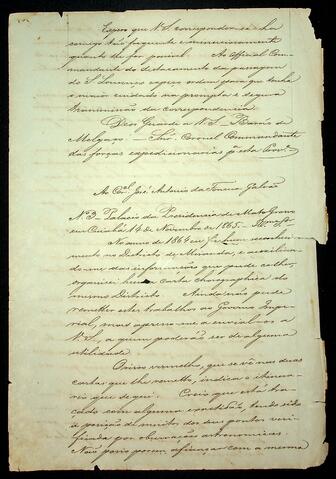 Espero que V.S. corresponder-se-ha
comigo tão frequente e minuciosamente
quanto lhe for possivel. Ao Official Com-
mandante do destacamento da passagem
de S. Lourenço espero ordem para que tenha
o maior cuidado na prompta e segura
transmissão da correspondencia.
Deos Guarde a V.S. Barão de
Melgaço. Snr. Coronel Commandante
das forças expedicionarias p.ª esta Prov.ª
Ao Cor.el José Antonio da Fonseca Galvão
N.º 3. Palacio da Presidencia de Mato Grosso
em Cuiabá 14 de Novembro de 1865.
No anno de 1864 eu fiz hum reconheci-
mento no Districto de Miranda, e auxilian-
do-me das informações que pude colher,
organisei huma carta chorographica do
mesmo Districto. Ainda não pude
remetter este trabalho ao Governo Impe-
rial, mas apresso-me a envial-o a
V.S., a quem poderá ser de alguma
utilidade.
O risco vermelho, que se vê nas duas
cartas que lhe remetto, indica o itinera-
rio que segui. Creio que está tra-
çado com alguma exactidão, tendo sido
a posição de muitos dos seus pontos veri-
ficada por observações astronomicas.
Não posso porem afiançar com a mesma